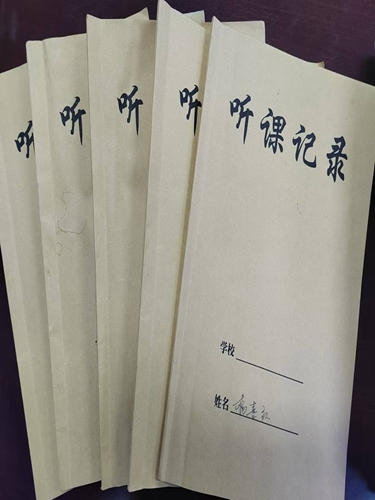 听
听
听
听
听课记录
学校
姓名